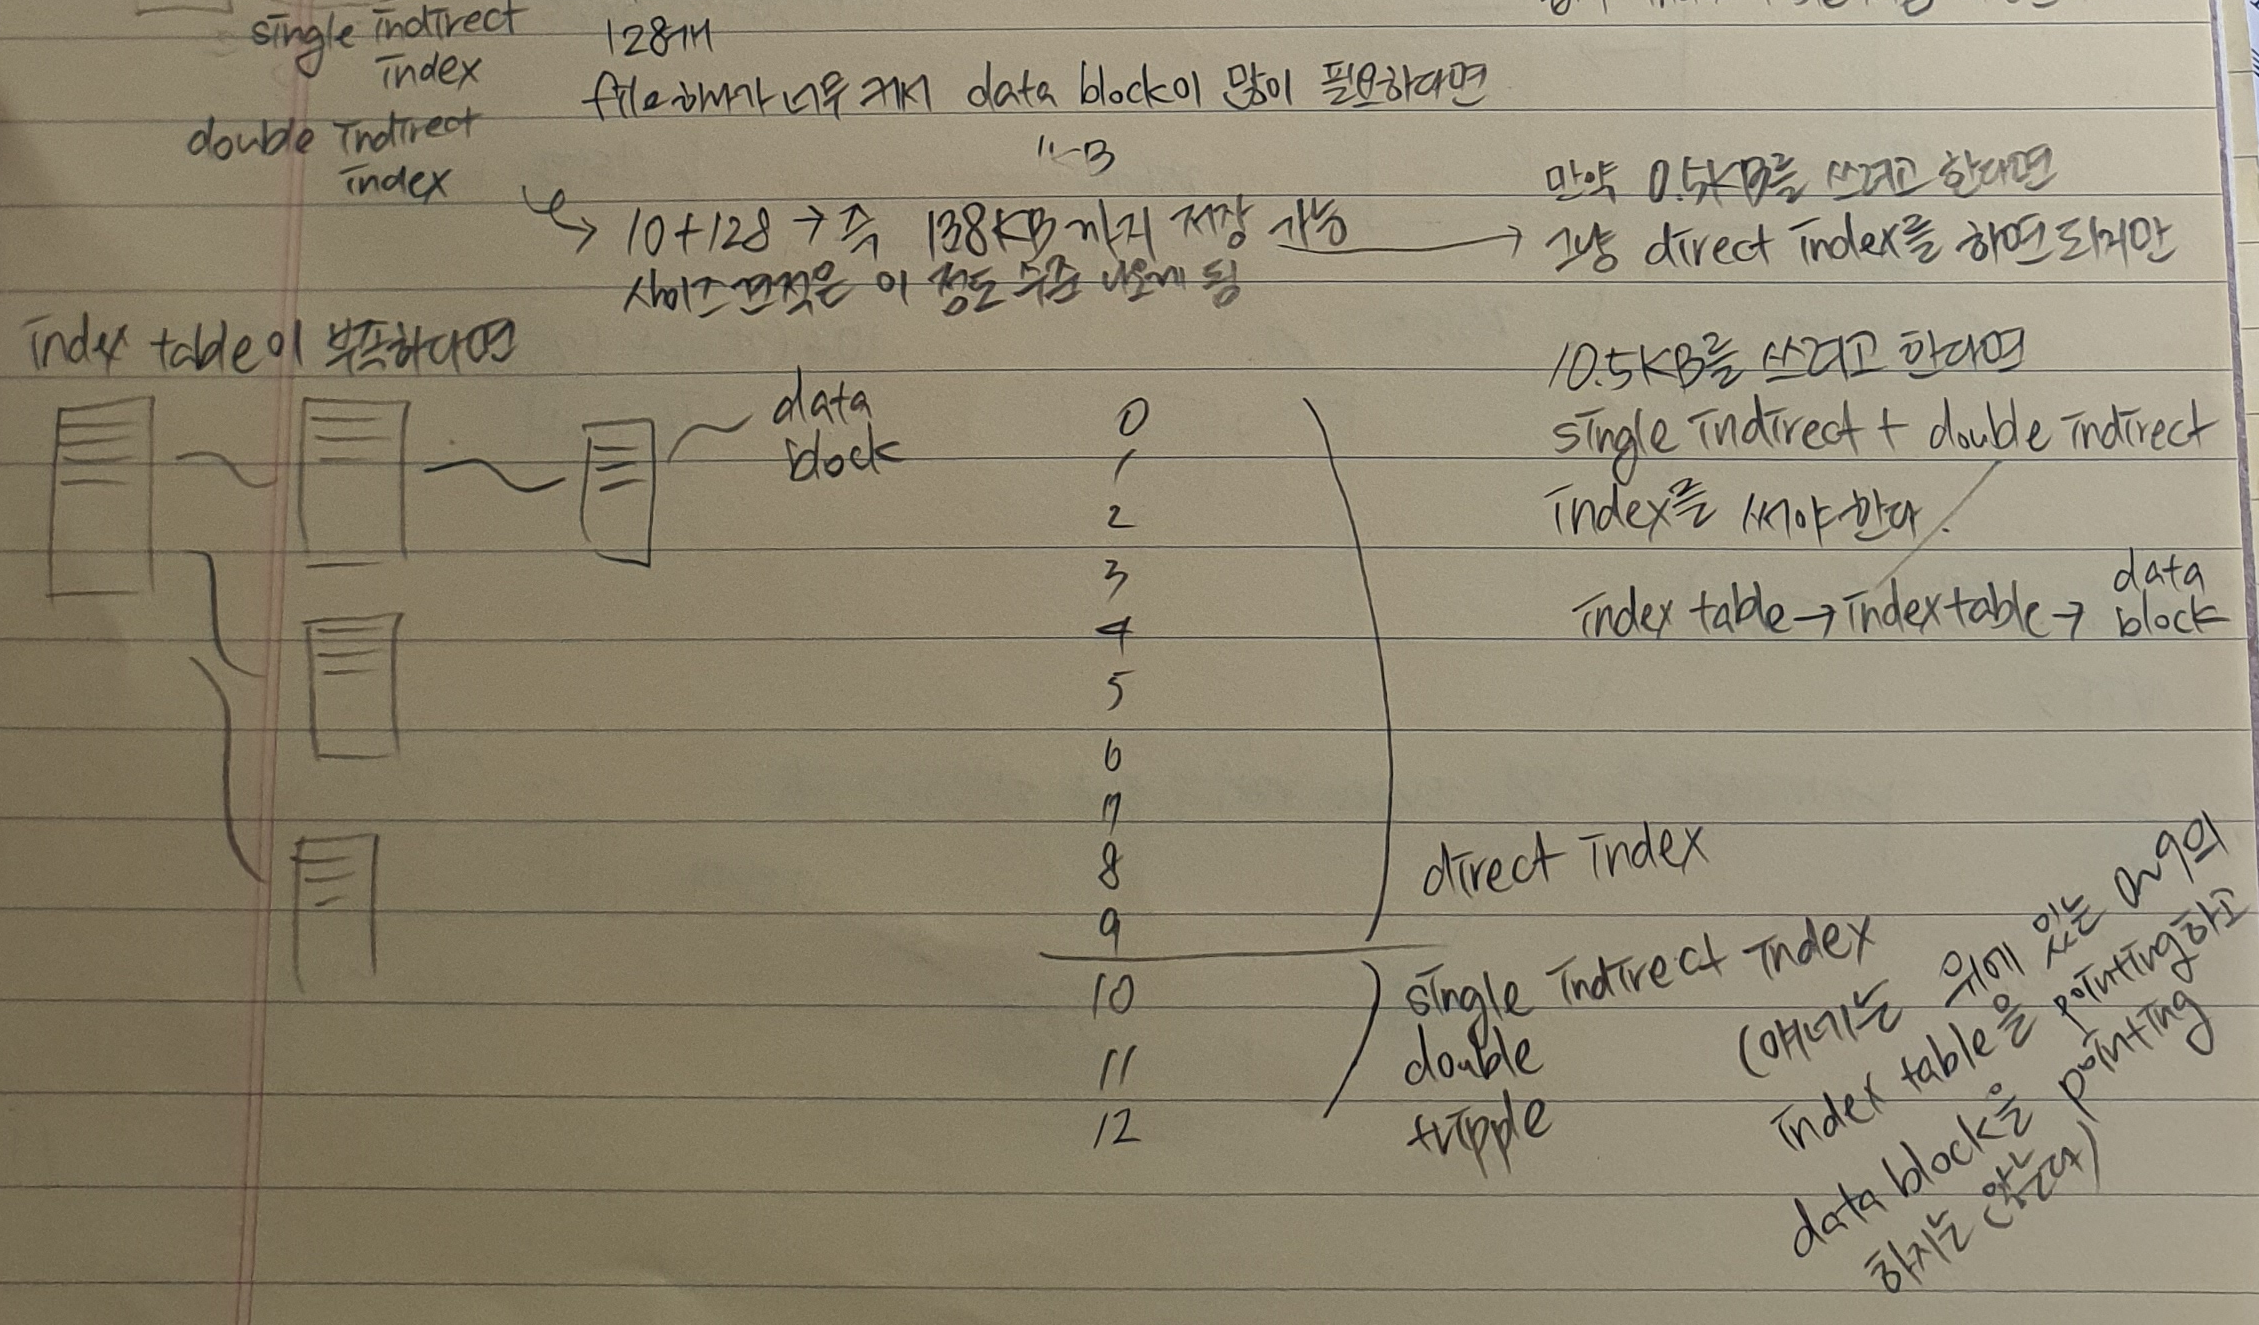 single indirect
index
128개
file하나가 너무 커서 data block이 많이 필요하다면
double indirect
index
→ 10+128 → 즉 138KB까지 저장 가능
사이즈 면적은 이 정도 수준 나오게 됨
→ 만약 0.5KB를 쓰려고 한다면
그냥 direct index를 하면 되지만
10.5KB를 쓰려고 한다면
single indirect + double indirect
index를 써야 한다.
index table → index table → data
block
index table이 부족하다면
data
block
0
1
2
3
4
5
6
7
8
9
direct index
10 single indirect index
11 double
12 tripple
(얘네는 위에 있는 0~9의
index table을 pointing하고
data block을 pointing
하지는 않는다)